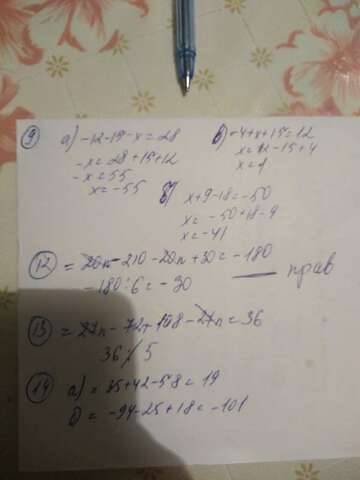 9 а) -12-15-x=28
-x=28+15+12
-x=55
x=-55
б) -4+x+15=12
x=12-15+4
x=1
в) x+9-18=-50
x=-50+18-9
x=-41
12 = 20n-210-20n+30=-180
-180:6=-30
прав
13 = 27n-72+108-27n=36
36 / 5
14 а)=35+42-58=19
б)=-94-25+18=-101